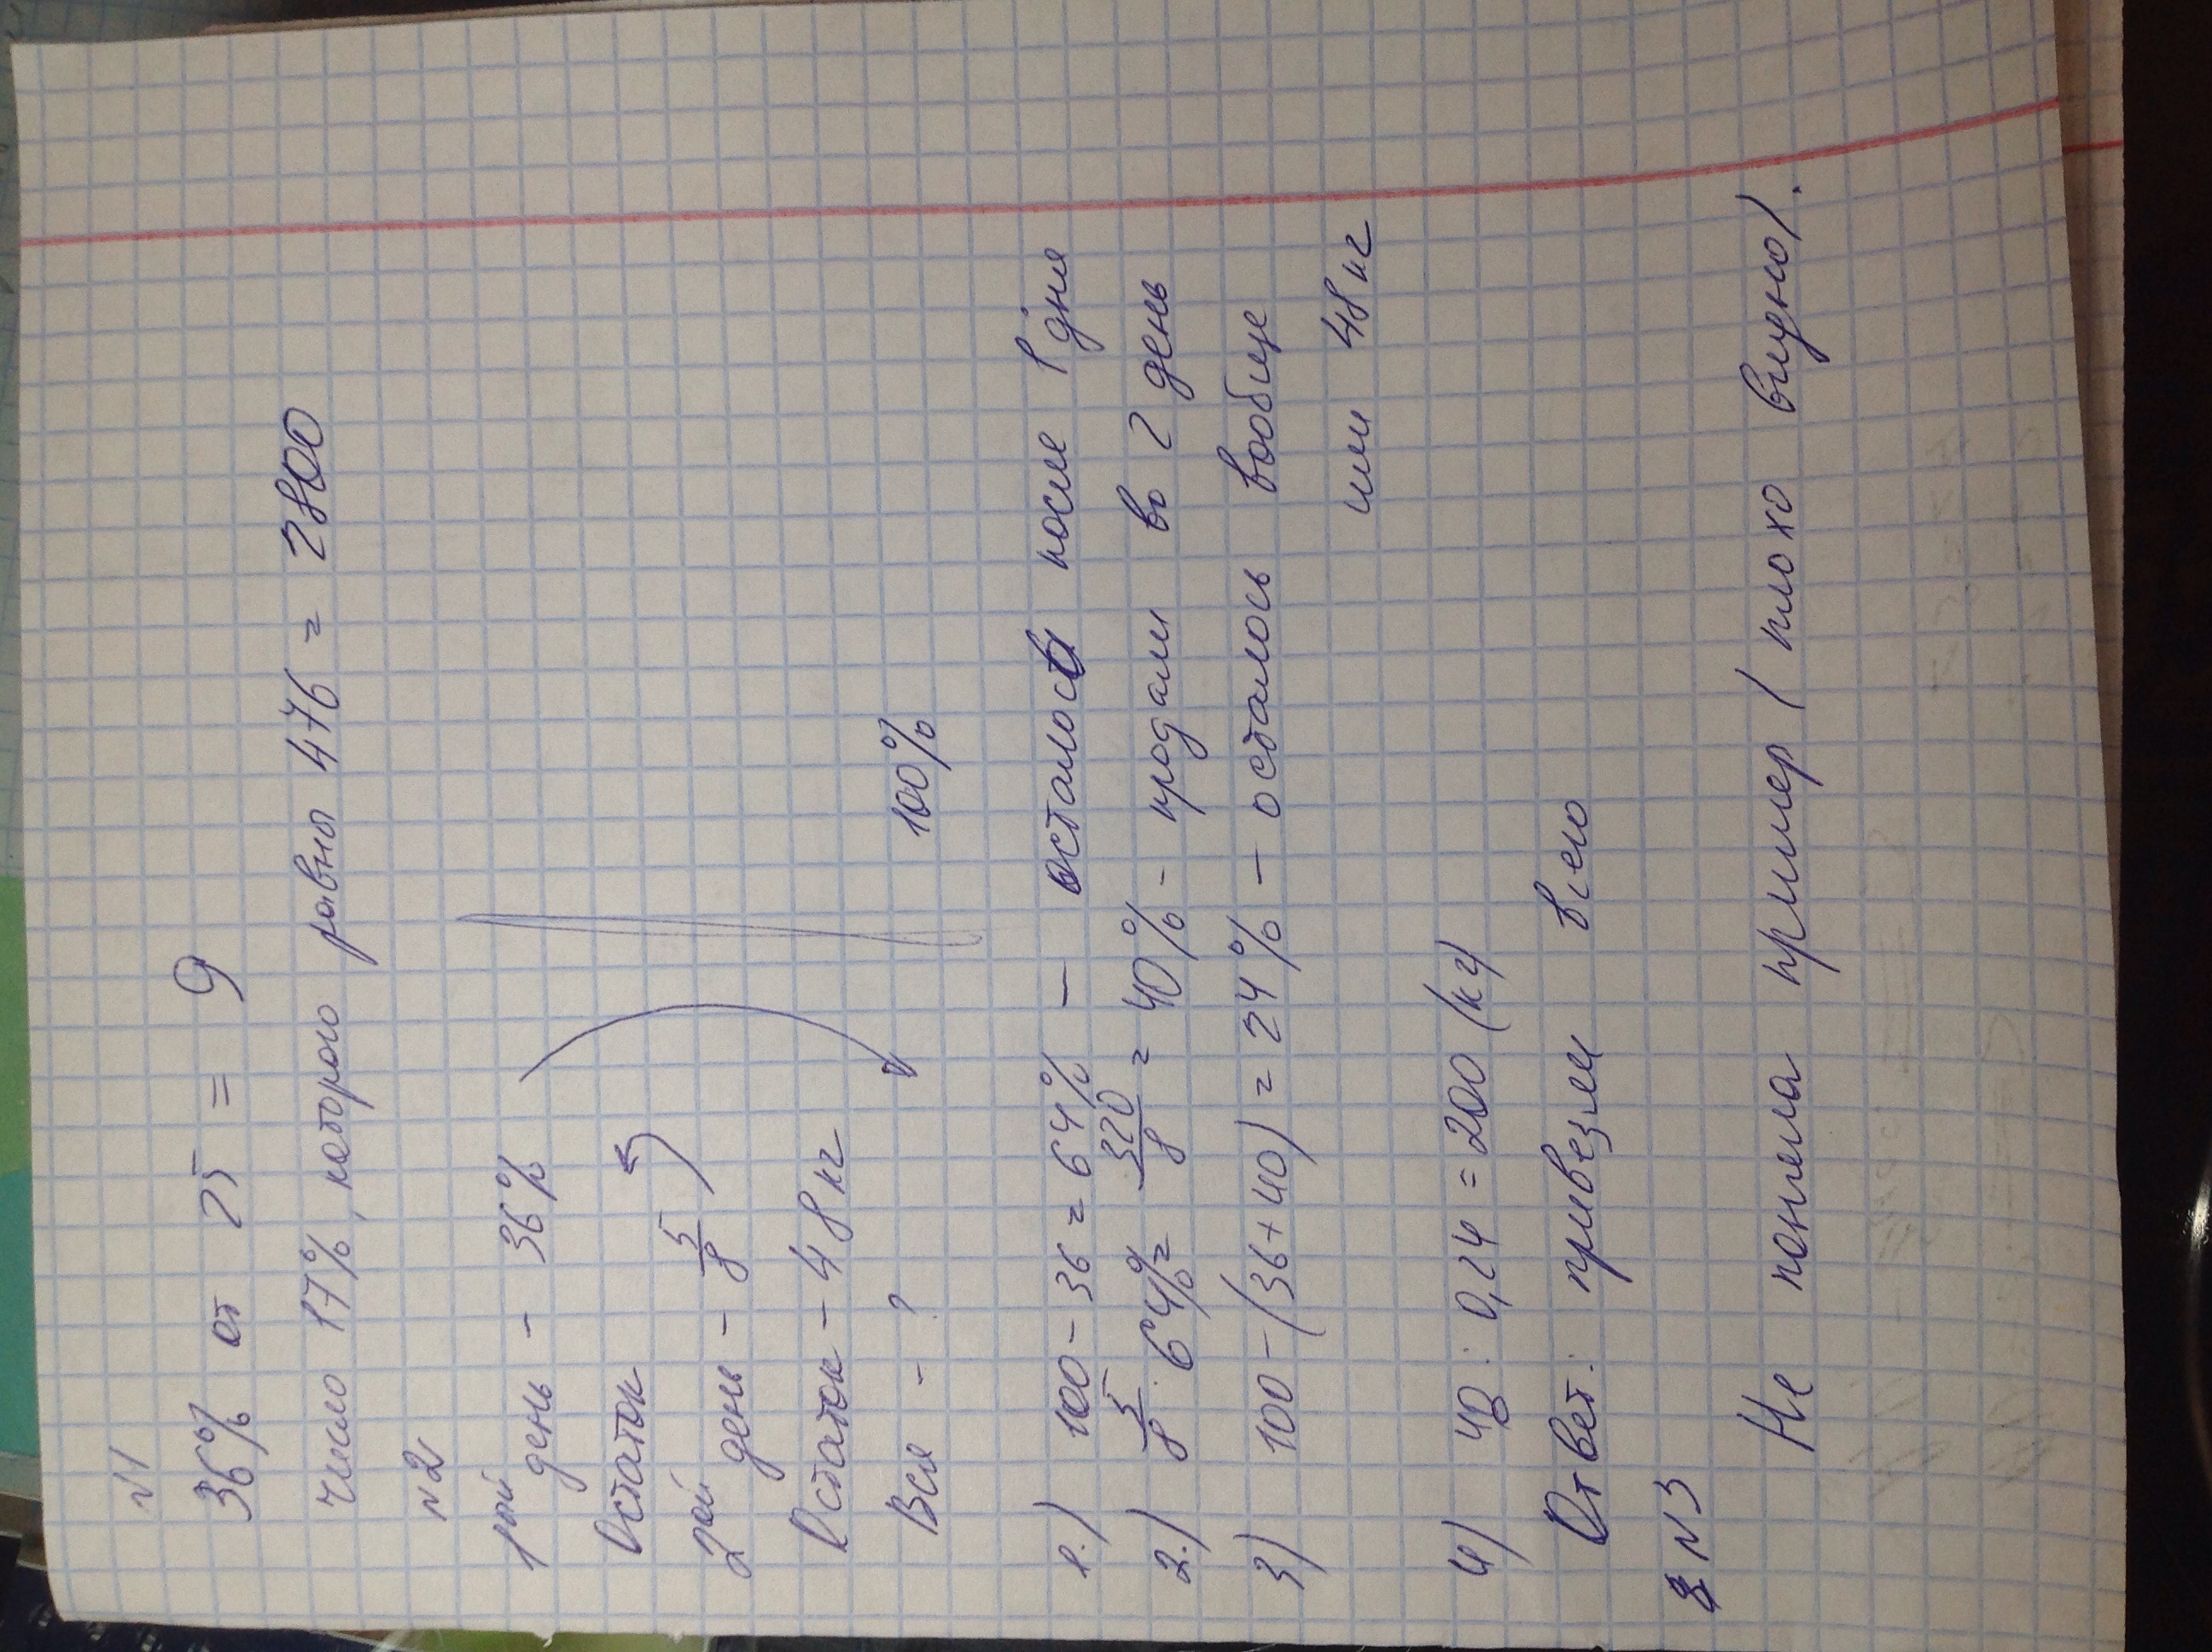 №1
36% от 25 = 9
число 17%, которого равны 476 = 2800
№2
1ый день - 36%
Остаток
2ой день - 5/8
Остаток - 48 кг
Всл - ? 100%
1.) 100 - 36 = 64% - осталось после 1 дня
2.) 5/8 · 64% = 320/8 = 40% - продали во 2 день
3) 100 - (36 + 40) = 24% - осталось вообще
или 48 кг
4) 48 : 0,24 = 200 (кг)
Ответ: привезли всего
№3
Не поняла пример (плохо видно).